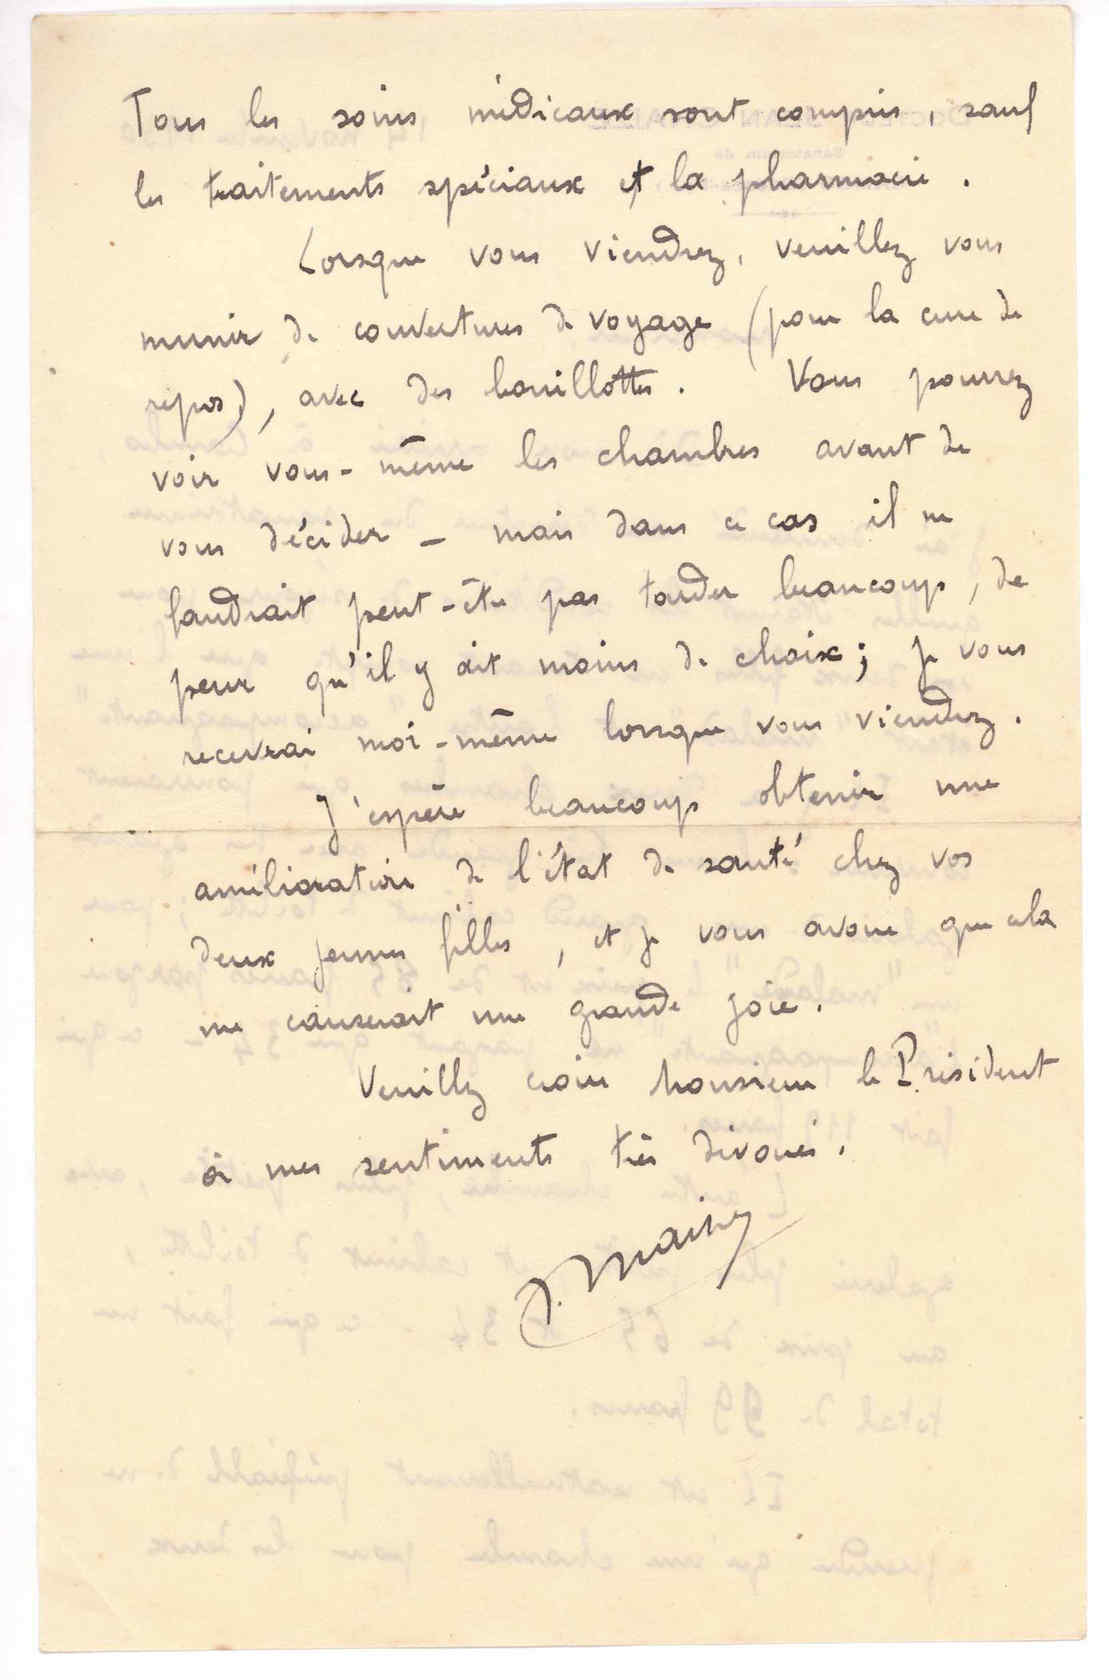 Tous les soins médicaux sont compris, sauf
les traitements spéciaux et la pharmacie.
Lorsque vous viendrez, veuillez vous
munir de couvertures de voyage (pour la cure de
repos), avec des bouillottes. Vous pourrez
voir vous-même les chambres avant de
vous décider - mais dans ce cas il ne
faudrait peut-être pas tarder beaucoup, de
peur qu'il y ait moins de choix; je vous
recevrai moi-même lorsque vous viendrez.
J'espère beaucoup obtenir une
amélioration de l'état de santé chez vos
deux jeunes filles, et je vous avoue que cela
me causerait une grande joie.
Veuillez croire Monsieur le Président
à mes sentiments très dévoués.